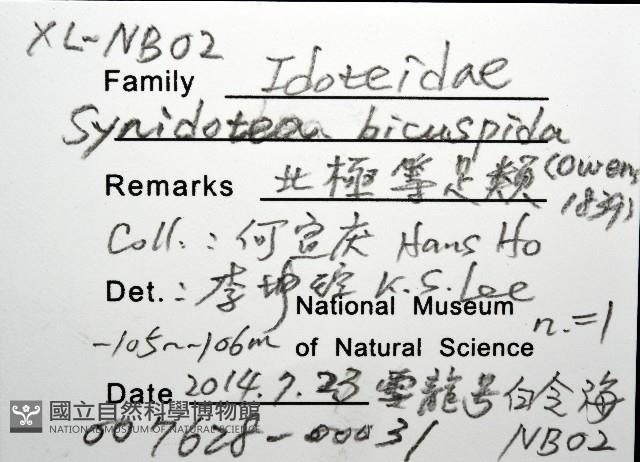 XL-NB02
Family Idoteidae
Synidotea bicuspida
Remarks 北極等足類 (Owen, 1839)
Coll.: 何宣庆 Hans Ho
Det.: 李坤瑄 K.S. Lee
National Museum
-105~-106m of Natural Science n.=1
Date 2014.7.23 雪龍号白令海
國立自然科學博物館
NATIONAL MUSEUM OF NATURAL SCIENCE
007628-00031 NB02